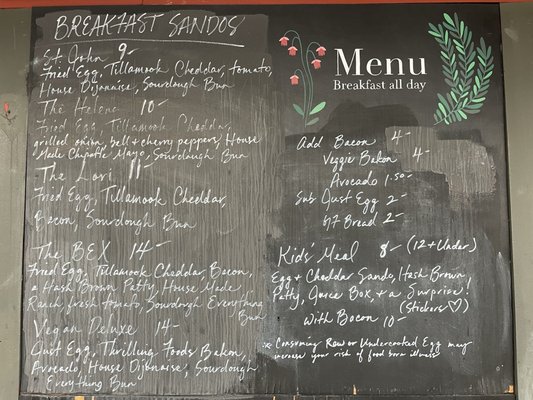 BREAKFAST SANDOS
St. John 9-
Fried Egg, Tillamook Cheddar, tomato,
House Dijonaise, Sourdough Bun
The Helena 10-
Fried Egg, Tillamook Cheddar,
grilled onion, bell + cherry peppers, House
Made Chipotle Mayo, Sourdough Bun
The Lori 11-
Fried Egg, Tillamook Cheddar,
Bacon, Sourdough Bun
The BEX 14-
Fried Egg, Tillamook Cheddar, Bacon,
a Hash Brown Patty, House Made
Ranch, fresh tomato, Sourdough Everything
Bun
Vegan Deluxe 14-
Just Egg, Thrilling Foods Bakon,
Avocado, House Dijonaise, Sourdough
Everything Bun
Menu
Breakfast all day
Add Bacon 4-
Veggie Bakon 4-
Avocado 1.50-
Sub Just Egg 2-
gf Bread 2-
Kids' Meal 8- (12 + Under)
Egg + Cheddar Sando, Hash Brown
Patty, Juice Box, + a Surprise!
(Stickers♡)
with Bacon 10-
* Consuming Raw or Undercooked Egg may
increase your risk of food born illness